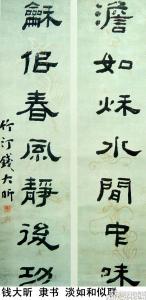 澹如秌水閒中味
龢佀春風靜後功
竹汀錢大昕
钱大昕 隶书 淡如和似联